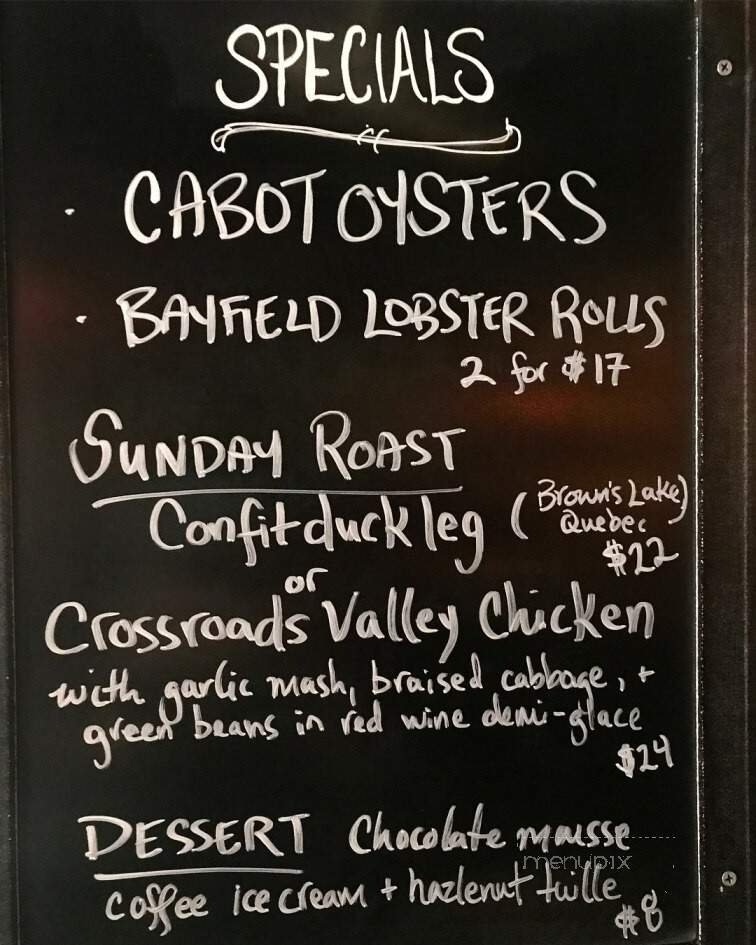 SPECIALS
· CABOT OYSTERS
· BAYFIELD LOBSTER ROLLS
2 for $17
SUNDAY ROAST
Confit duck leg (Brown's Lake)
Quebec
$22
or
Crossroads Valley Chicken
with garlic mash, braised cabbage, +
green beans in red wine demi-glace
$24
DESSERT Chocolate mousse
menupix
coffee ice cream + hazlenut tuille
$8